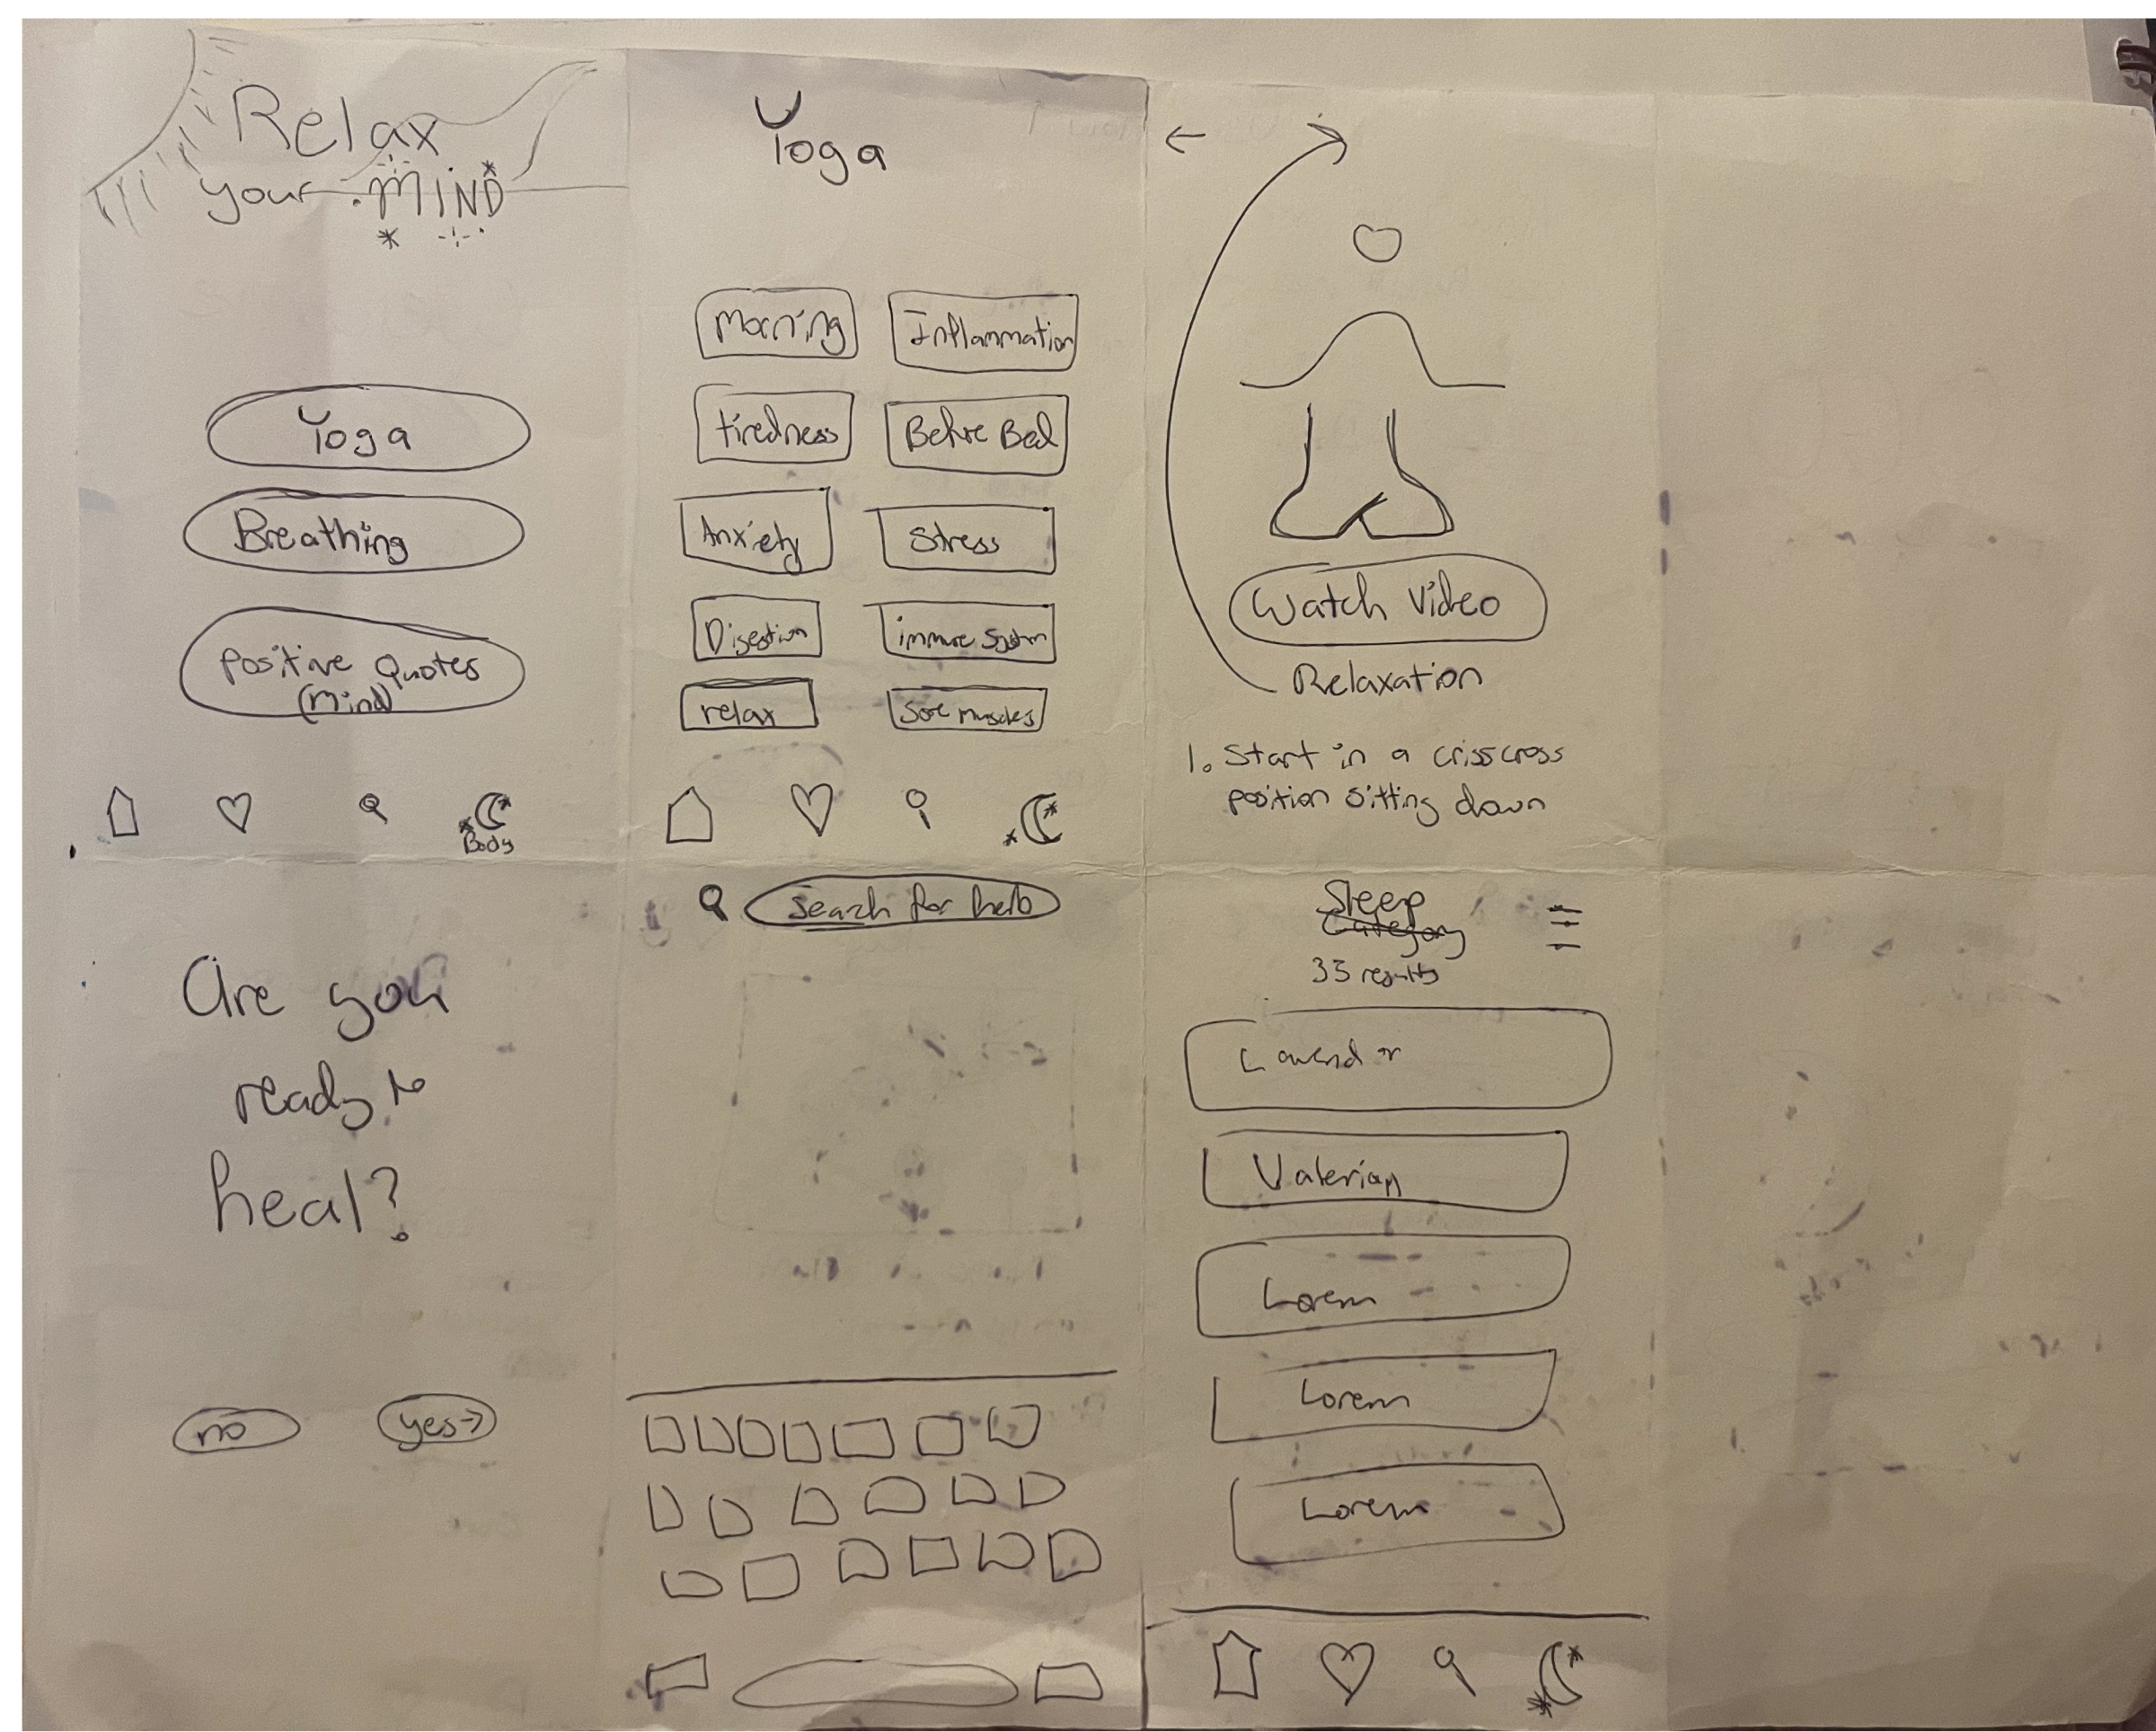 Relax
your MIND
Yoga
Breathing
Positive Quotes
(Mind)
Body
Yoga
Morning
Inflammation
tiredness
Before Bed
Anxiety
Stress
Digestion
immune System
relax
Sore muscles
Watch Video
Relaxation
1. Start in a crisscross
position sitting down
Are you
ready to
heal?
no
yes→
Search for herb
Sleep
Category
33 results
Lavendr
Valerian
Lorem
Lorem
Lorem